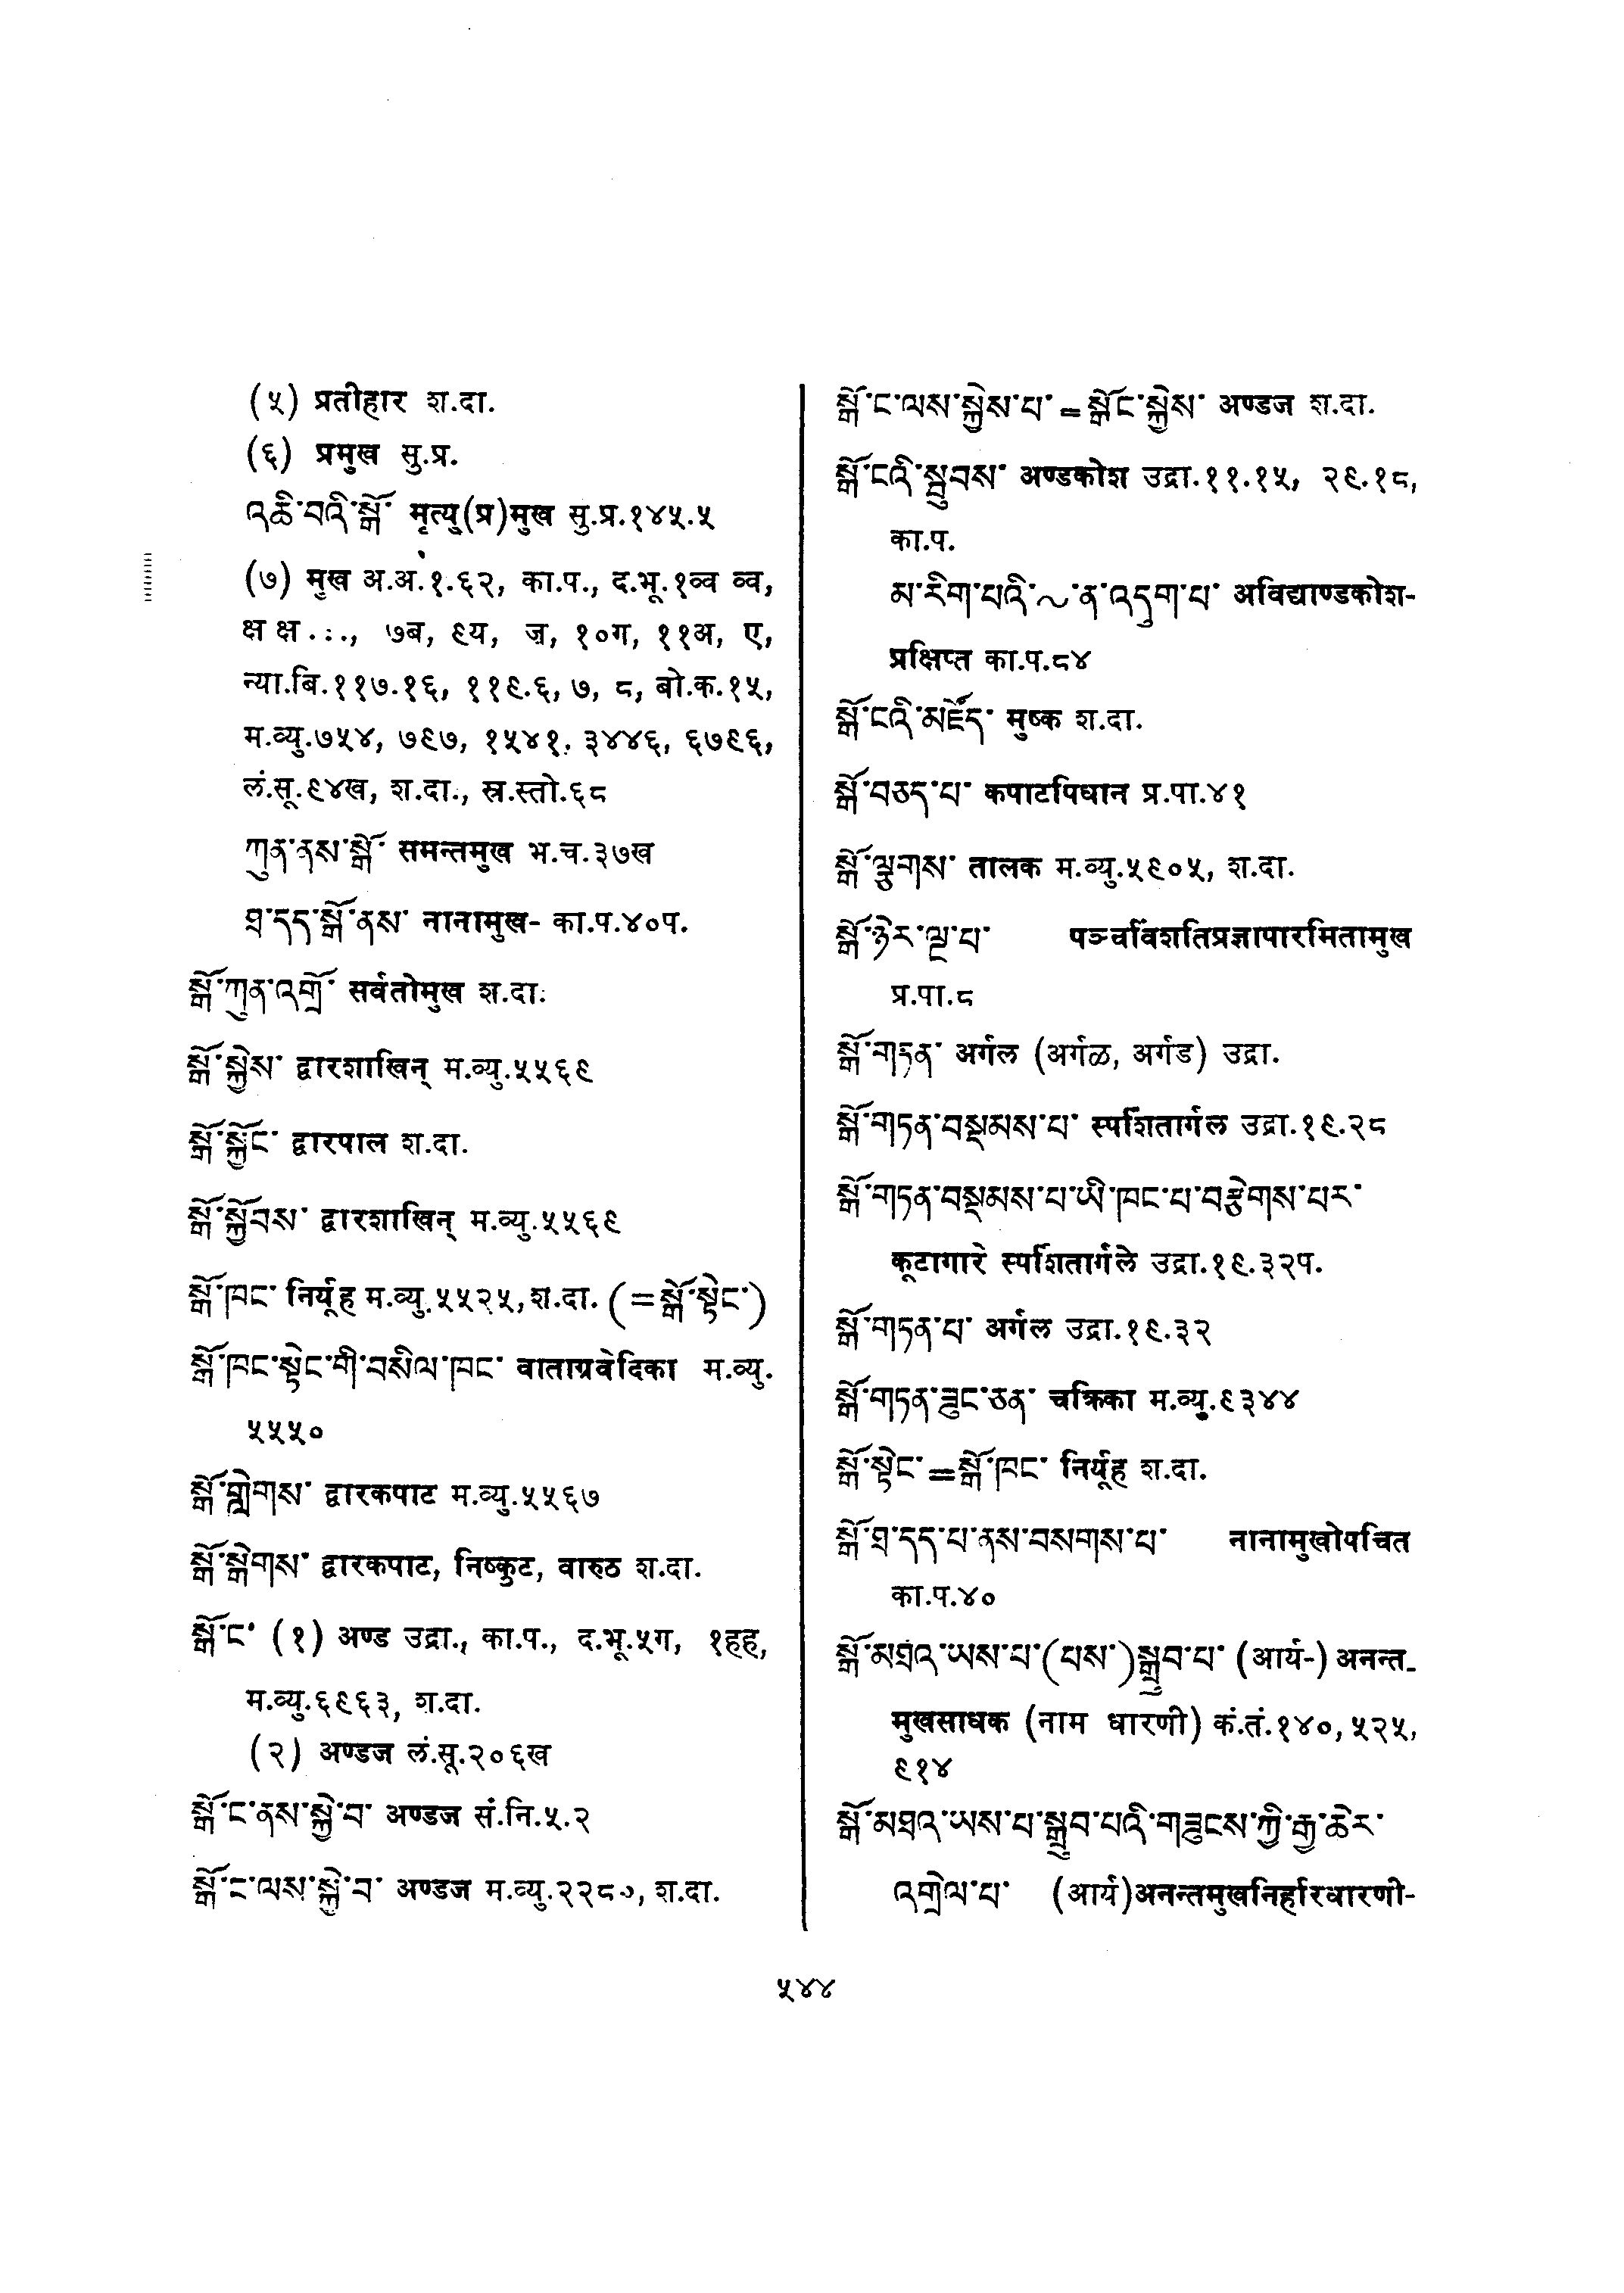 (५) प्रतीहार श.दा.
(६) प्रमुख सु.प्र.
འཆི་བའི་སྒོ་ मृत्यु(प्र)मुख सु.प्र.१४५.५
(७) मुख अ.अ.१.६२, का.प., द.भू.१व्व व्व,
क्ष क्ष ..., ७ब, ९य, ज्ञ, १०ग, ११अ, ए,
न्या.बि.११७.१६, ११९.६, ७, ८, बो.क.१५,
म.व्यु.७५४, ७९७, १५४१, ३४४६, ६७९६,
लं.सू.९४ख, श.दा., स्र.स्तो.६८
ཀུན་ནས་སྒོ་ समन्तमुख भ.च.३७ख
ཐ་དད་སྒོ་ནས་ नानामुख- का.प.४०प.
སྒོ་ཀུན་འགྲོ་ सर्वतोमुख श.दा.
སྒོ་སྐྱེས་ द्वारशाखिन् म.व्यु.५५६९
སྒོ་སྐྱོང་ द्वारपाल श.दा.
སྒོ་སྐྱོབས་ द्वारशाखिन् म.व्यु.५५६९
སྒོ་ཁང་ निर्यूह म.व्यु.५५२५, श.दा. (=སྒོ་སྟེང་)
སྒོ་ཁང་སྟེང་གི་བསིལ་ཁང་ वाताग्रवेदिका म.व्यु.
५५५०
སྒོ་གླེགས་ द्वारकपाट म.व्यु.५५६७
སྒོ་སྒེགས་ द्वारकपाट, निष्कुट, वारुठ श.दा.
སྒོ་ང་ (१) अण्ड उद्रा., का.प., द.भू.५ग, १हह,
म.व्यु.६९६३, श.दा.
(२) अण्डज लं.सू.२०६ख
སྒོ་ང་ནས་སྐྱེ་བ་ अण्डज सं.नि.५.२
སྒོ་ང་ལས་སྐྱེ་བ་ अण्डज म.व्यु., श.दा.
སྒོ་ང་ལས་སྐྱེས་པ་=སྒོང་སྐྱེས་ अण्डज श.दा.
སྒོ་ངའི་སྦུབས་ अण्डकोश उद्रा.११.१५, २९.१८,
का.प.
མ་རིག་པའི་~ན་འདུག་པ་ अविद्याण्डकोश-
प्रक्षिप्त का.प.८४
སྒོ་ངའི་མཛོད་ मुष्क श.दा.
སྒོ་བཅད་པ་ कपाटपिधान प्र.पा.४१
སྒོ་ལྕགས་ तालक म.व्यु.५९०५, श.दा.
སྒོ་ཉེར་ལྔ་པ་ पञ्चविंशतिप्रज्ञापारमितामुख
प्र.पा.८
སྒོ་གཏན་ अर्गल (अर्गळ, अर्गड) उद्रा.
སྒོ་གཏན་བསྡམས་པ་ स्पर्शितार्गल उद्रा.१९.२८
སྒོ་གཏན་བསྡམས་པ་ཡི་ཁང་པ་བརྩེགས་པར་
कूटागारे स्पर्शितार्गले उद्रा.१९.३२प.
སྒོ་གཏན་པ་ अर्गल उद्रा.१९.३२
སྒོ་གཏན་ཟུང་ཅན་ चक्रिका म.व्यु.९३४४
སྒོ་སྟེང་=སྒོ་ཁང་ निर्यूह श.दा.
སྒོ་ཐ་དད་པ་ནས་བསགས་པ་ नानामुखोपचित
का.प.४०
སྒོ་མཐའ་ཡས་པ་(པས་)སྒྲུབ་པ་ (आर्य-) अनन्त-
मुखसाधक (नाम धारणी) कं.तं.१४०, ५२५,
९१४
སྒོ་མཐའ་ཡས་པ་སྒྲུབ་པའི་གཟུངས་ཀྱི་རྒྱ་ཆེར་
འགྲེལ་པ་ (आर्य)अनन्तमुखनिर्हारधारणी-
५४४